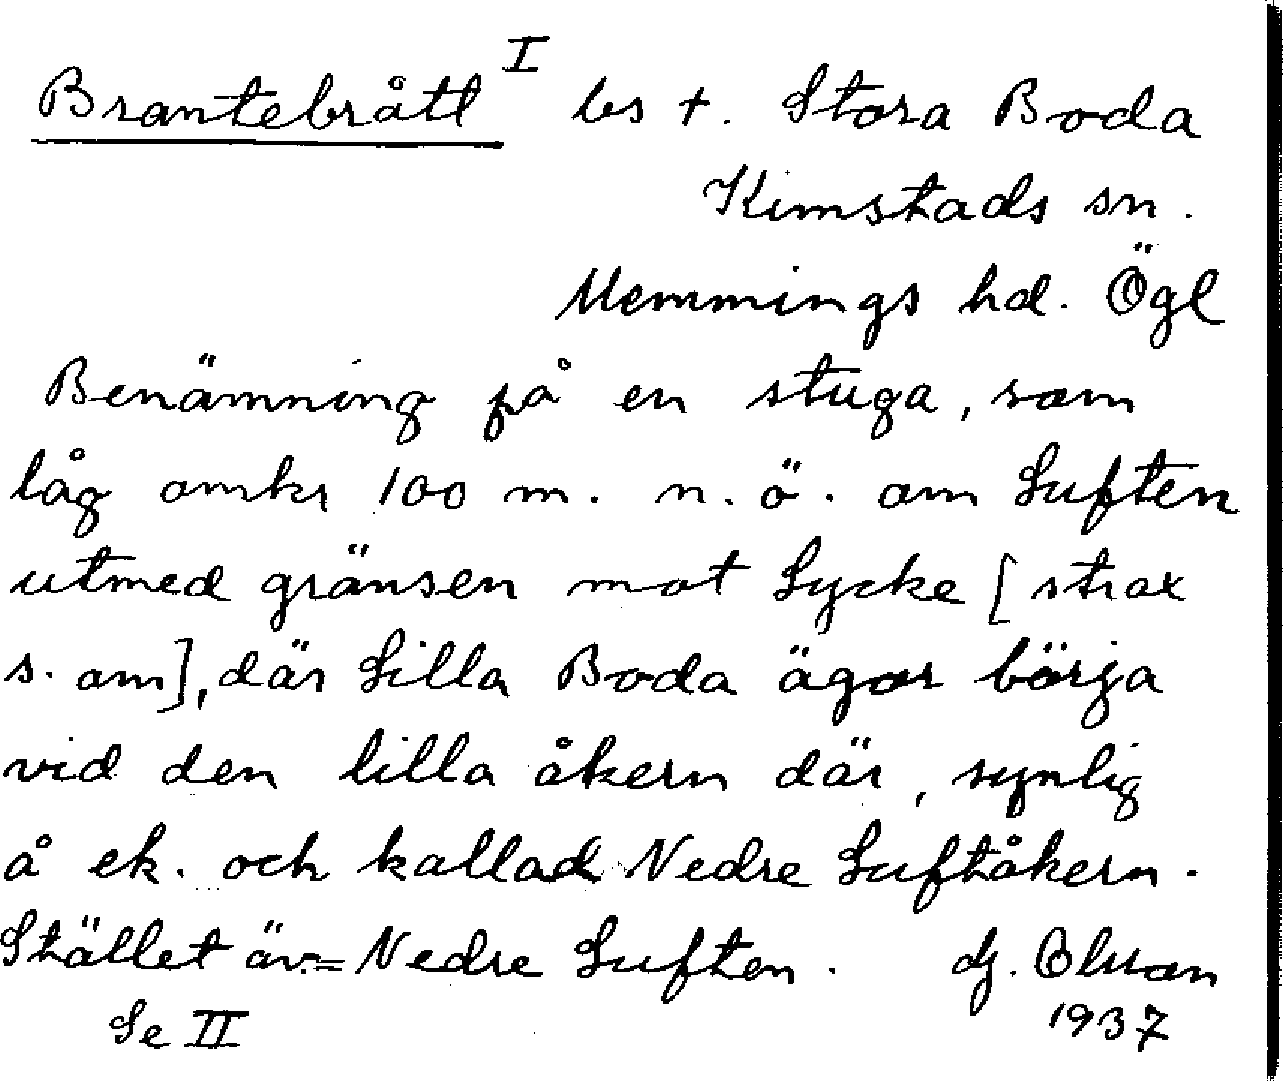 Brantebrått I bs t. Stora Boda
Kimstads sn.
Memmings hd. Ögl
Benämning på en stuga, som
låg omkr 100 m. n. ö. om Luften
utmed gränsen mot Lycke [strax
s. om], där Lilla Boda ägor börja
vid den lilla åkern där, synlig
å ek. och kallad Nedre Luftåkern.
Stället äv = Nedre Luften.
Se II 1937